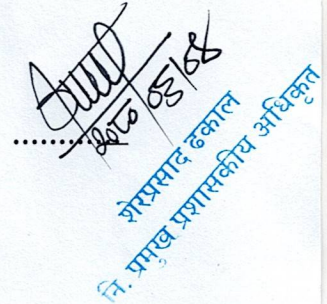 २०८०/०६/०४
शेरप्रसाद ढकाल
नि. प्रमुख प्रशासकीय अधिकृत